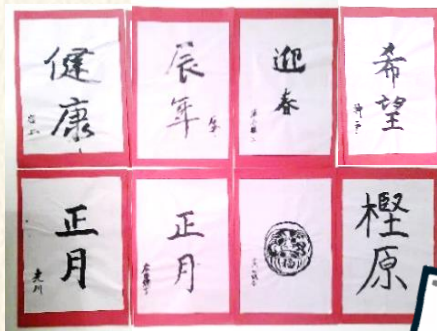 健康
辰年
迎春
希望
正月
正月
樫原